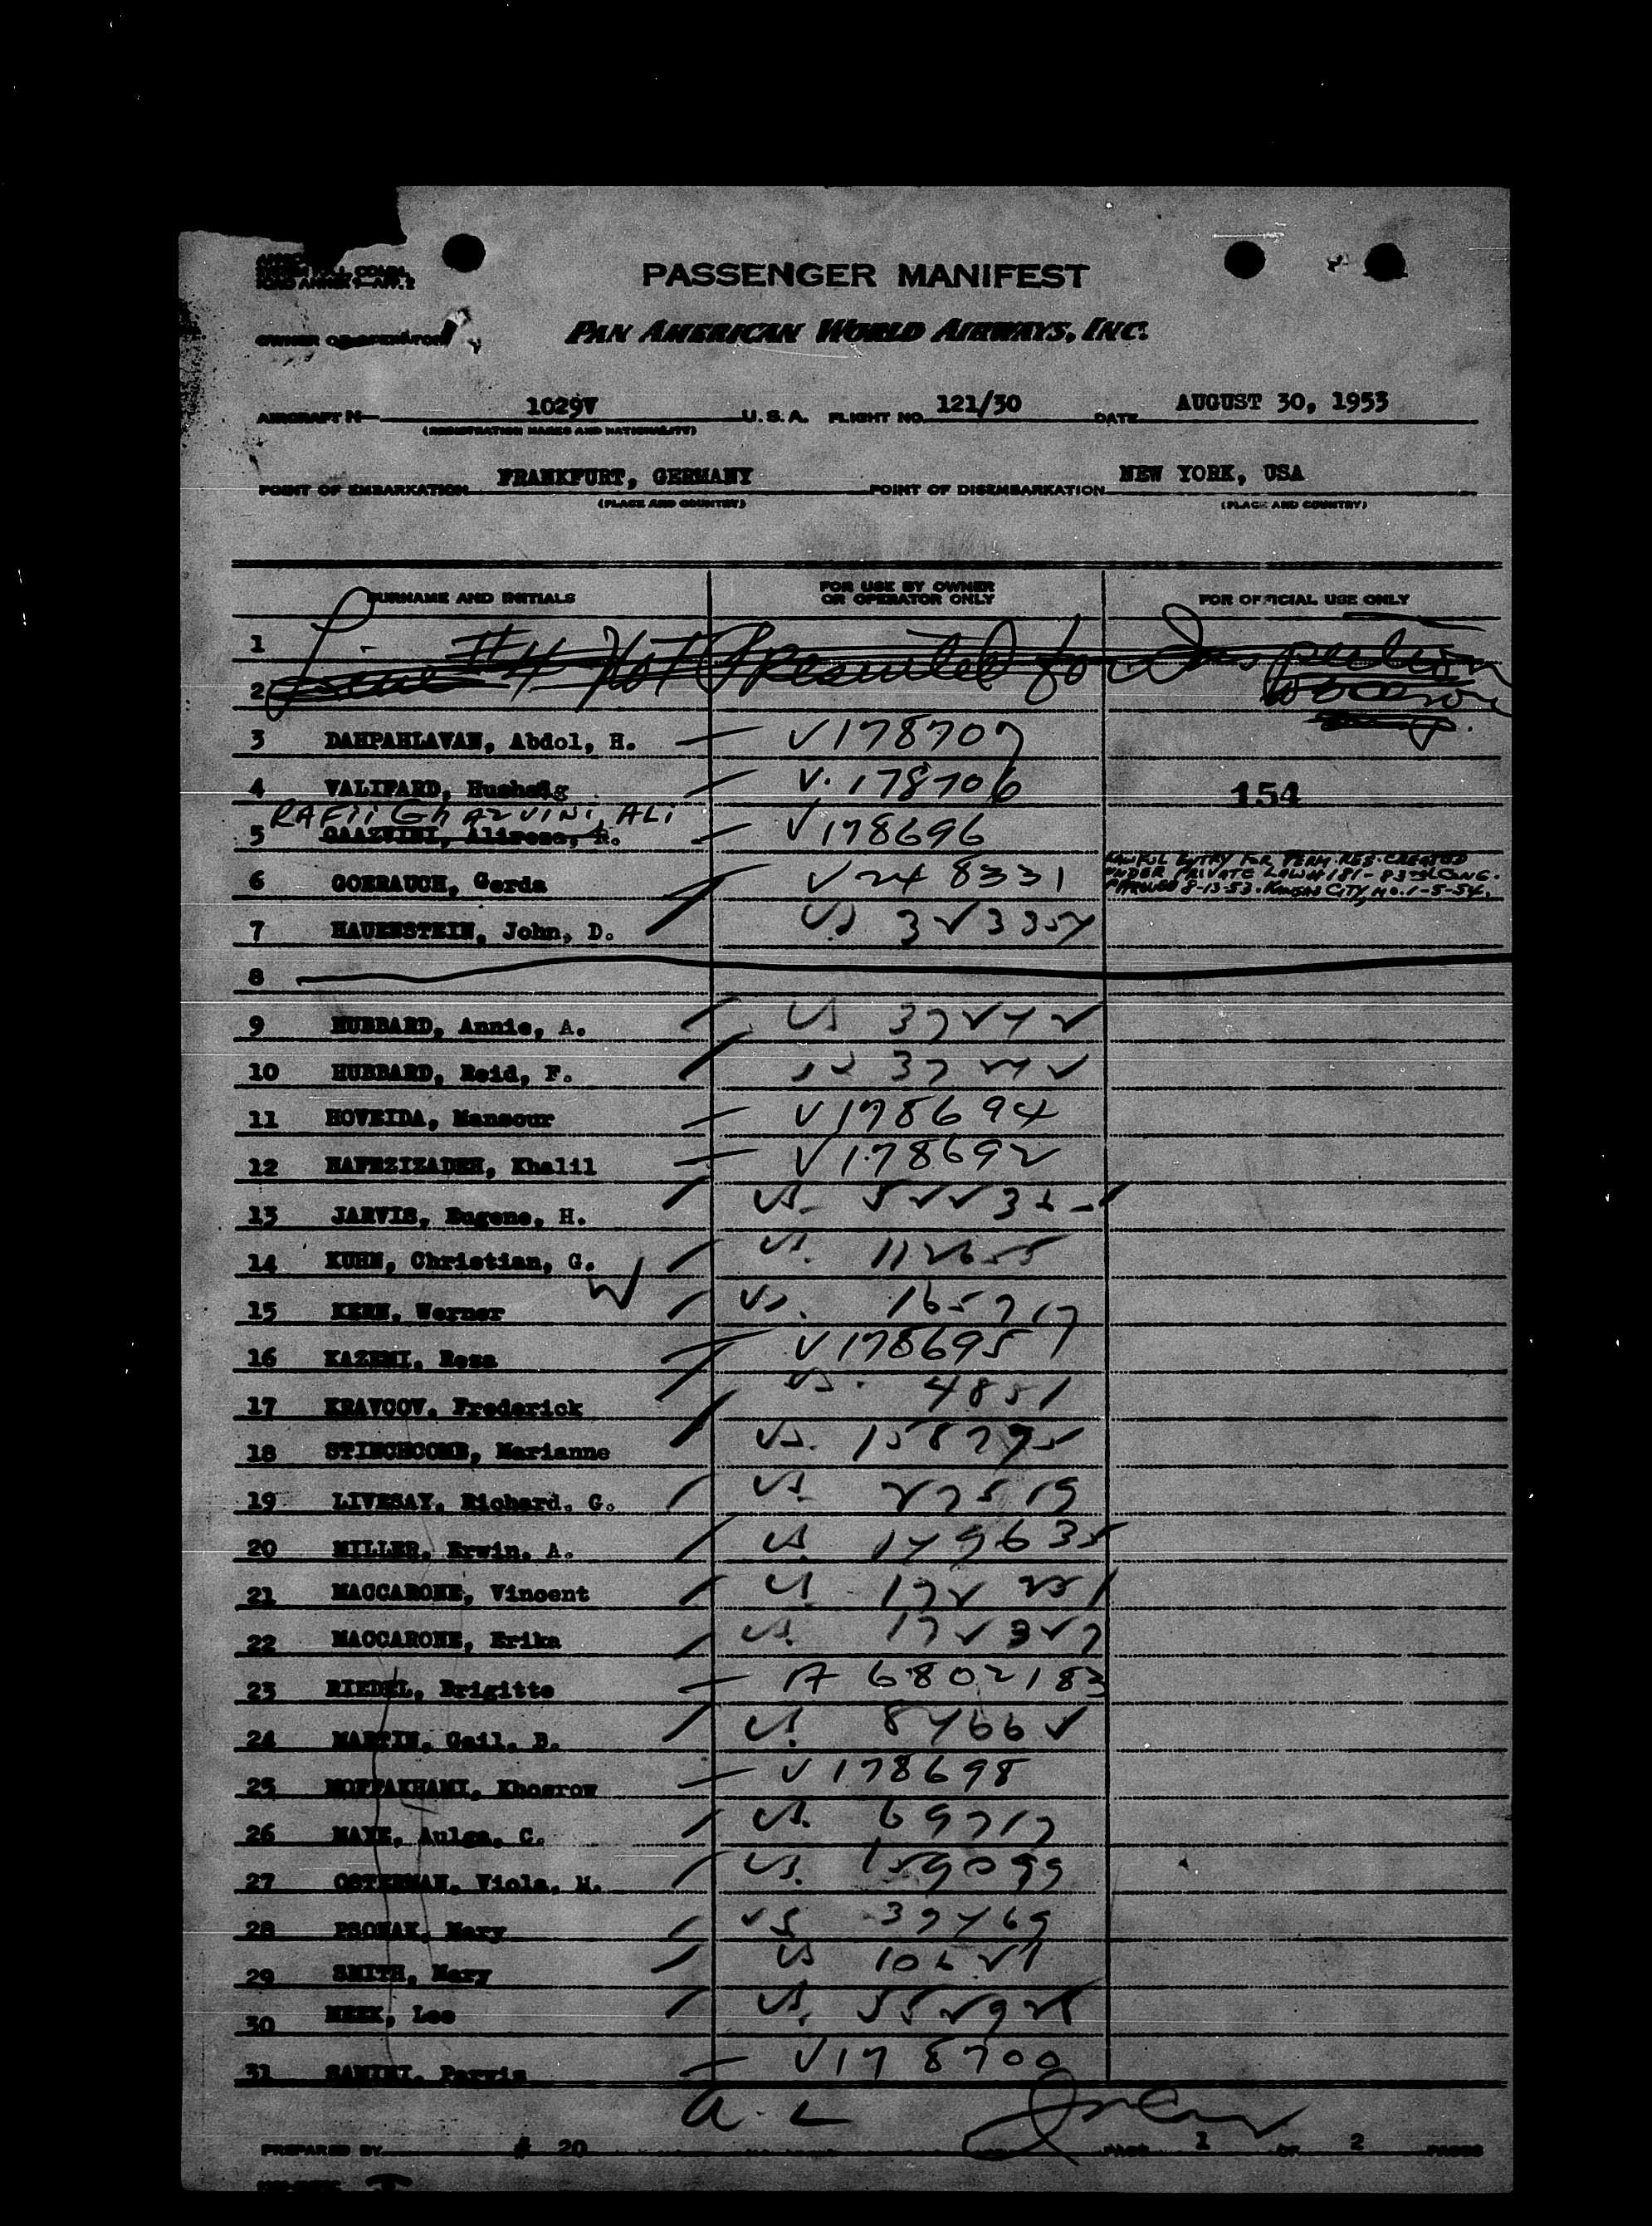 PASSENGER MANIFEST
OWNER OR OPERATOR PAN AMERICAN WORLD AIRWAYS, INC.
AIRCRAFT N 1029V U.S.A. FLIGHT NO. 121/30 DATE AUGUST 30, 1953
(REGISTRATION MARKS AND NATIONALITY)
POINT OF EMBARKATION FRANKFURT, GERMANY POINT OF DISEMBARKATION NEW YORK, USA
(PLACE AND COUNTRY) (PLACE AND COUNTRY)
SURNAME AND INITIALS FOR USE BY OWNER OR OPERATOR ONLY FOR OFFICIAL USE ONLY
1
Line #4 Not Presented for Inspection
2
3 DAHPAHLAVAN, Abdol, H. V178707
4 VALIFARD, V.178706 154
RAFII GhAZVINI, ALI
5 GAAZVINI, Alireza, R. V178696
6 GOERAUCH, Gerda V248331 LAWFUL ENTRY FOR PERM. RES. CREATED
UNDER PRIVATE LAW# 181-83RD CONG.
8-13-53. KANSAS CITY, MO. 1-5-54.
7 HAUENSTEIN, John, D. US 323354
8
9 HUBBARD, Annie, A. US 37242
10 HUBBARD, Reid, F. US 37242
11 HOVEIDA, Mansour V178694
12 HAFEZIZADEH, Khalil V178692
13 JARVIS, Eugene, H. US.
14 KUHN, Christian, G. US. 112655
15 KERN, Werner US. 165717
16 KAZEMI, Reza V178695
17 KRAVCOV, Frederick US. 4851
18 STINCHCOMB, Marianne US. 158795
19 LIVESAY, Richard, G. US. 27519
20 MILLER, Erwin, A. US 149635
21 MACCARONE, Vincent US.
22 MACCARONE, Erika US. 172327
23 RIEDEL, Brigitte A 6802183
24 MARTIN, Gail, B. US. 84662
25 MOFTAKHAMI, Khosrow V178698
26 MAYE, Aulga, C. US. 69717
27 OSTERMAN, Viola, M. US. 159099
28 PSOMAK, Mary US 39469
29 SMITH, Mary US 10621
30 MEEK, Lee US.
31 SAMIMI, Parviz V178700
a. L
PREPARED BY # 20 PAGE 1 OF 2 PAGES